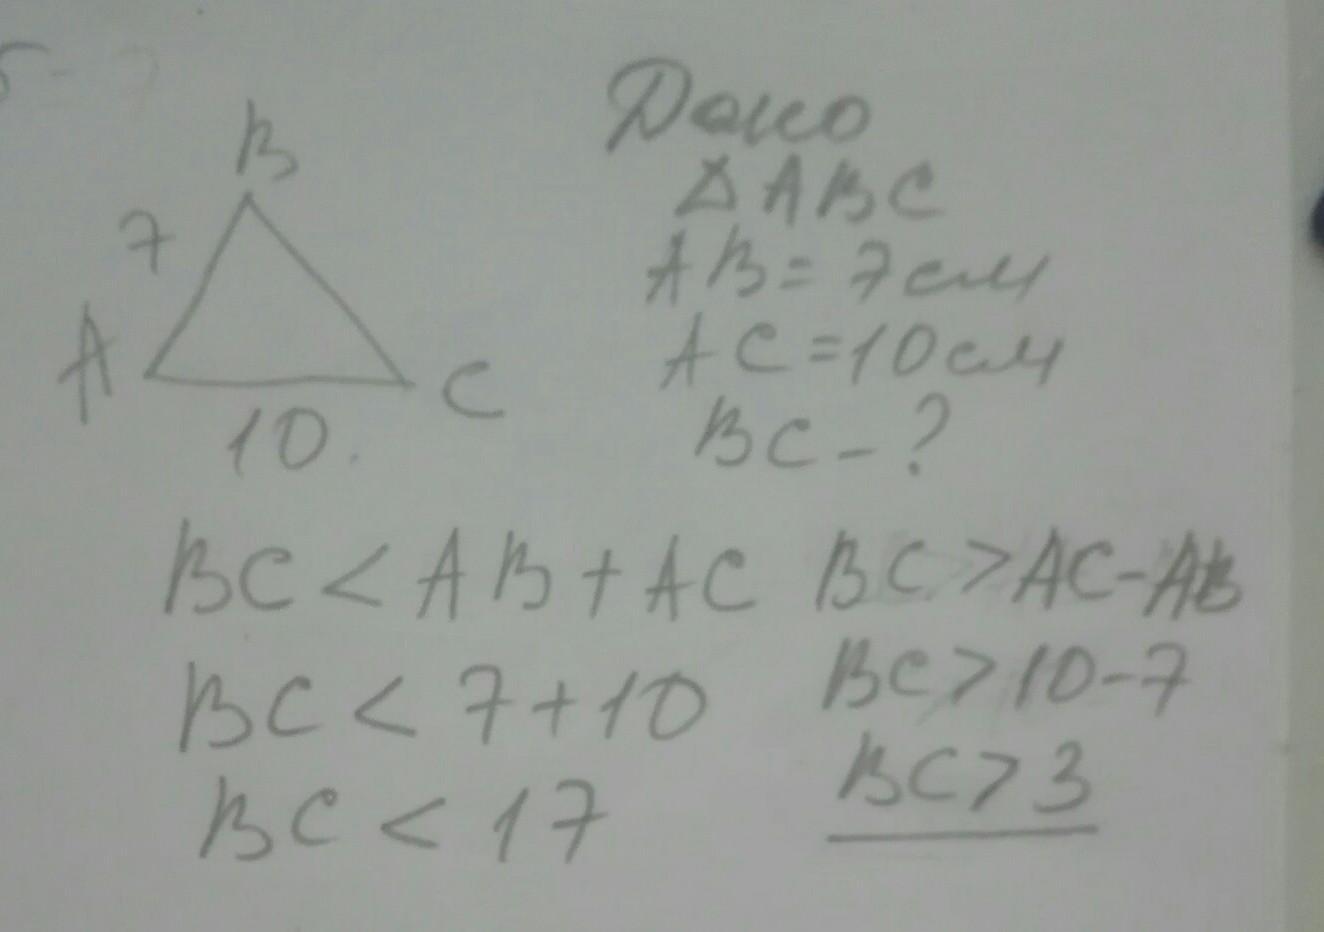 B
7
A
C
10.
Дано
△ABC
AB = 7см
AC = 10см
BC - ?
BC < AB + AC
BC < 7 + 10
BC < 17
BC > AC - AB
BC > 10 - 7
BC > 3